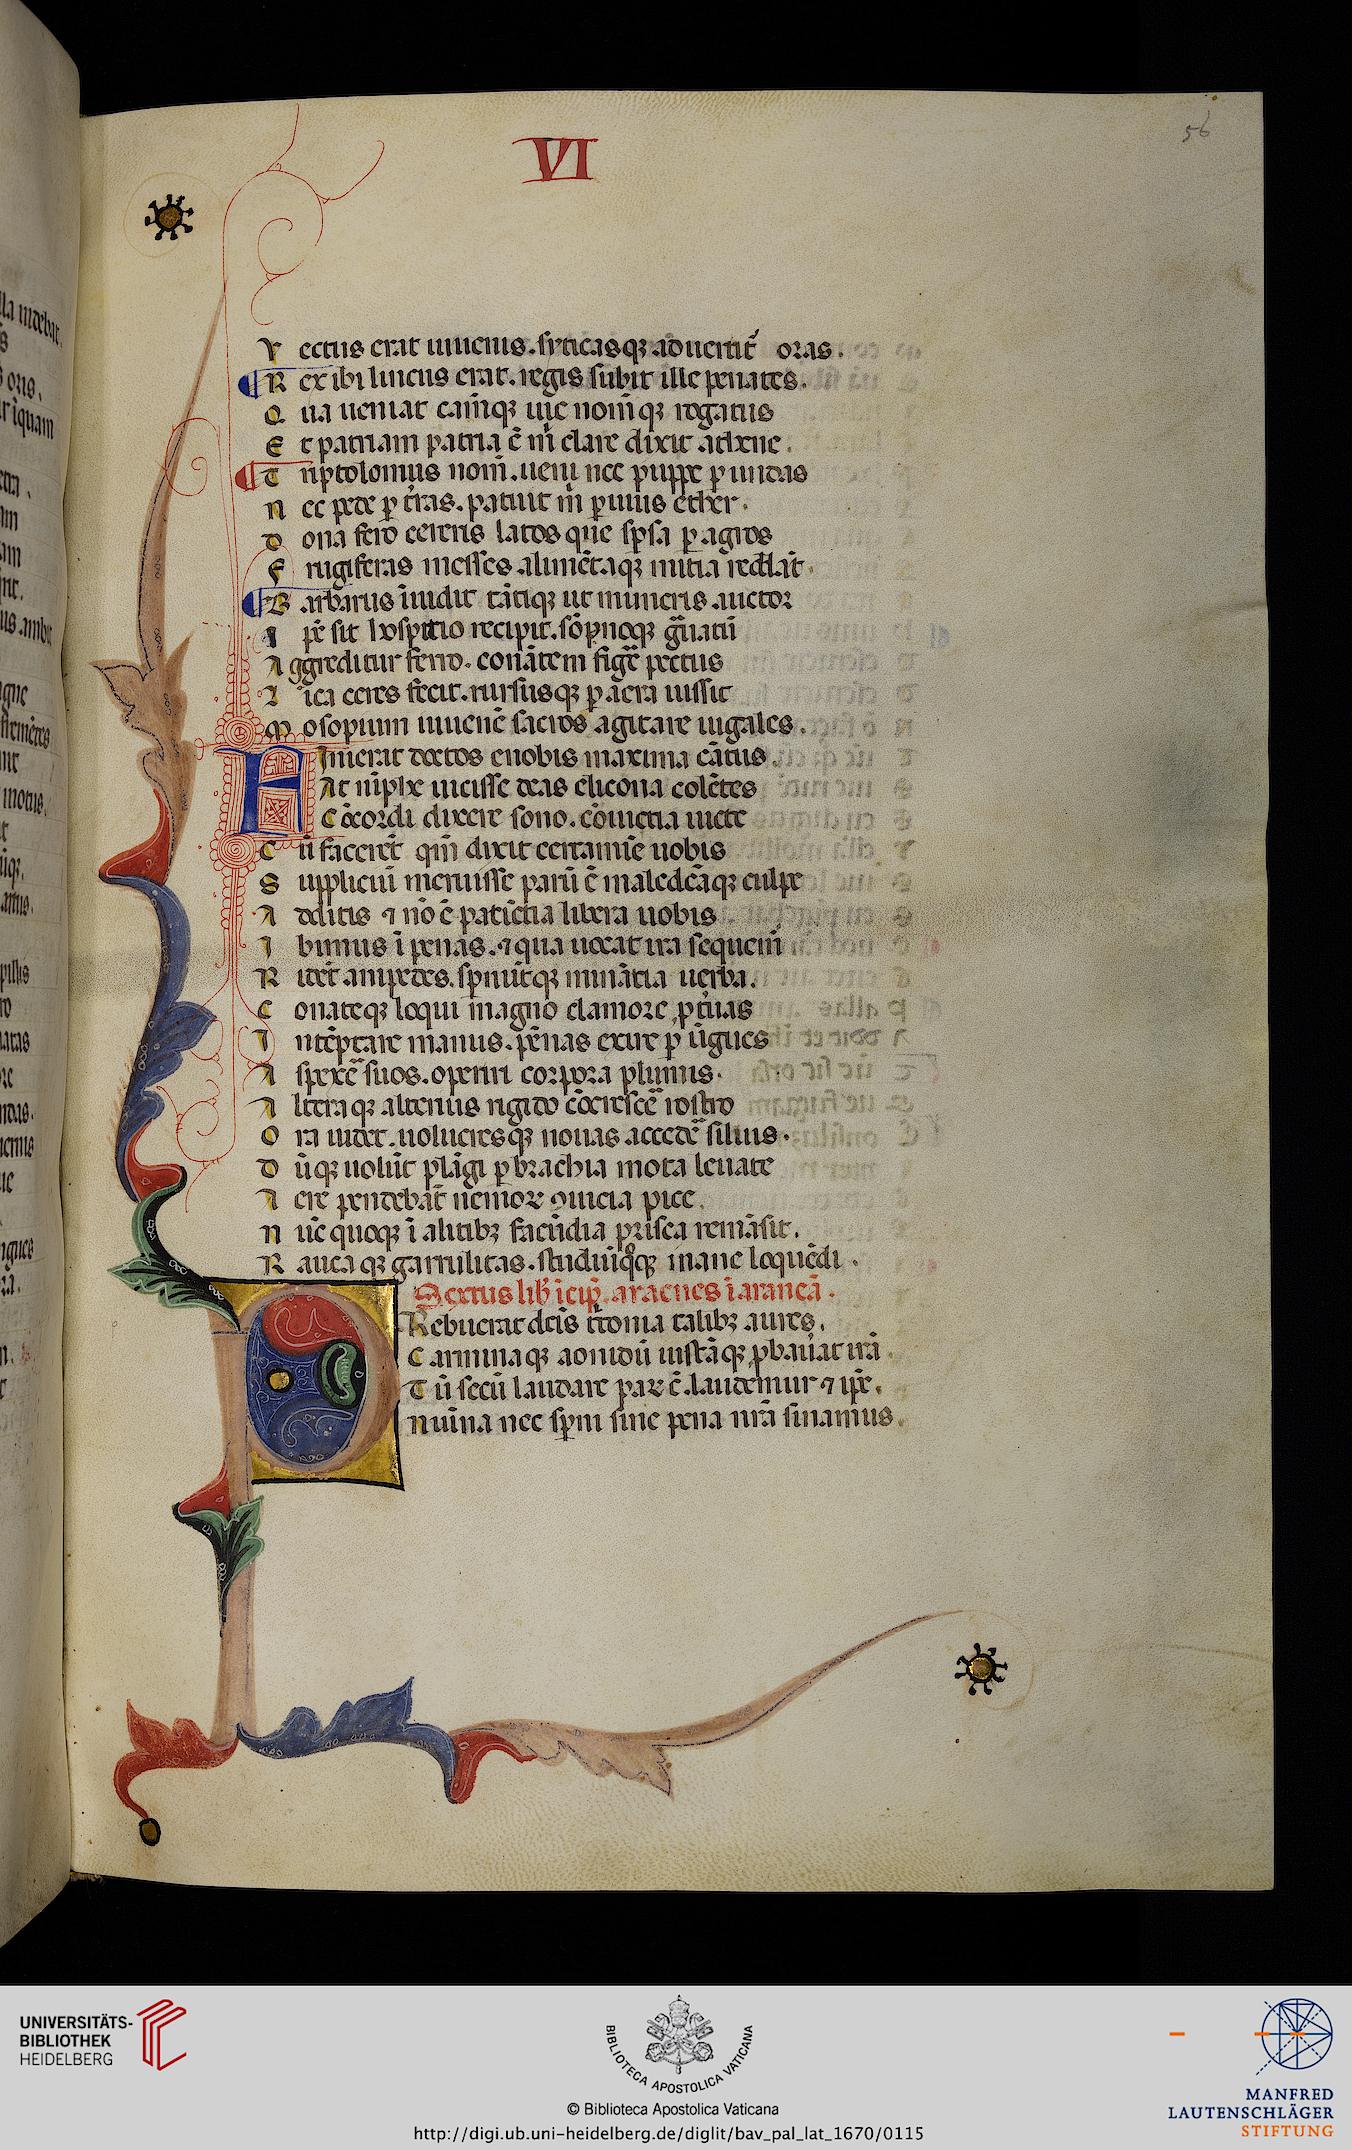 VI
56
V ectus erat iuuenis. siticasq; aduertit̾ oras.
R ex ibi lincus erat. regis subit ille penates.
Q ua ueniat camq; uie nom̄q; rogatus
E t patriam patria ē m̄ clare dixit athene.
T riptolomus nom̄. ueni nec puppe ꝑ undas
N ec pede ꝑ tr̄as. patuit m̄ ꝑuius ether.
D ona fero cereris latos que sꝑsa ꝑ agros
F rugiferas messes alimētaq; mitia reddāt.
B arbarus īuidit tātiq; ut muneris auctor
I pē sit hospitio recipit. sōpnoq; g̃uatū
A ggreditur ferro. conātem figē pectus
L ica ceres fecit. rursusq; ꝑ aera iussit
M osopium iuuenē sacros agitare iugales.
Finierat doctos enobis maxima cātus.
At nīphe uicisse deas elicona colētes
Cōcordi dixere sono. cōuicia uicte
C ū facerēt qm̄ dixit certamīe uobis
S upplicium meruisse parū ē maledc̄aq; culpe
A dditis ⁊ nō ē patiētia libera uobis
I bimus ī penas. ⁊ qua uocat ira sequem̄
R idēt ampedes. spnūtq; minātia uerba.
C onateq; loqui magno clamore ꝓt̾uas
I ntēptare manus. pēnas exire ꝑ ūgues
A spexē suos. operiri corpora plumis.
A lteraq; alterius rigido cōcrescē rostro
O ra uidet. uolucresq; nouas accedē siluis.
D ūq; uolūt plāgi ꝑ brachia mota leuate
A ere pendebāt nemorꝫ ꝯuicia pice.
N ūc quoq; ī alitibꝫ facūdia prisca remāsit.
R auca q; garrulitas. studiūq; inane loquēdi.
Sextus lib̾ īcip̄. aracnes ī araneā.
PRebuerat dc̄is tritonia talibꝫ aures.
C armina q; aonidū iustāq; ꝓbauāt irā.
T ū secū laudare parꝫ ē. laudemur ⁊ ipē.
Numīa nec spn̄i sine pena nr̄a sinamus.
UNIVERSITÄTS-
BIBLIOTHEK
HEIDELBERG
BIBLIOTECA APOSTOLICA VATICANA
© Biblioteca Apostolica Vaticana
http://digi.ub.uni-heidelberg.de/diglit/bav_pal_lat_1670/0115
MANFRED
LAUTENSCHLÄGER
STIFTUNG